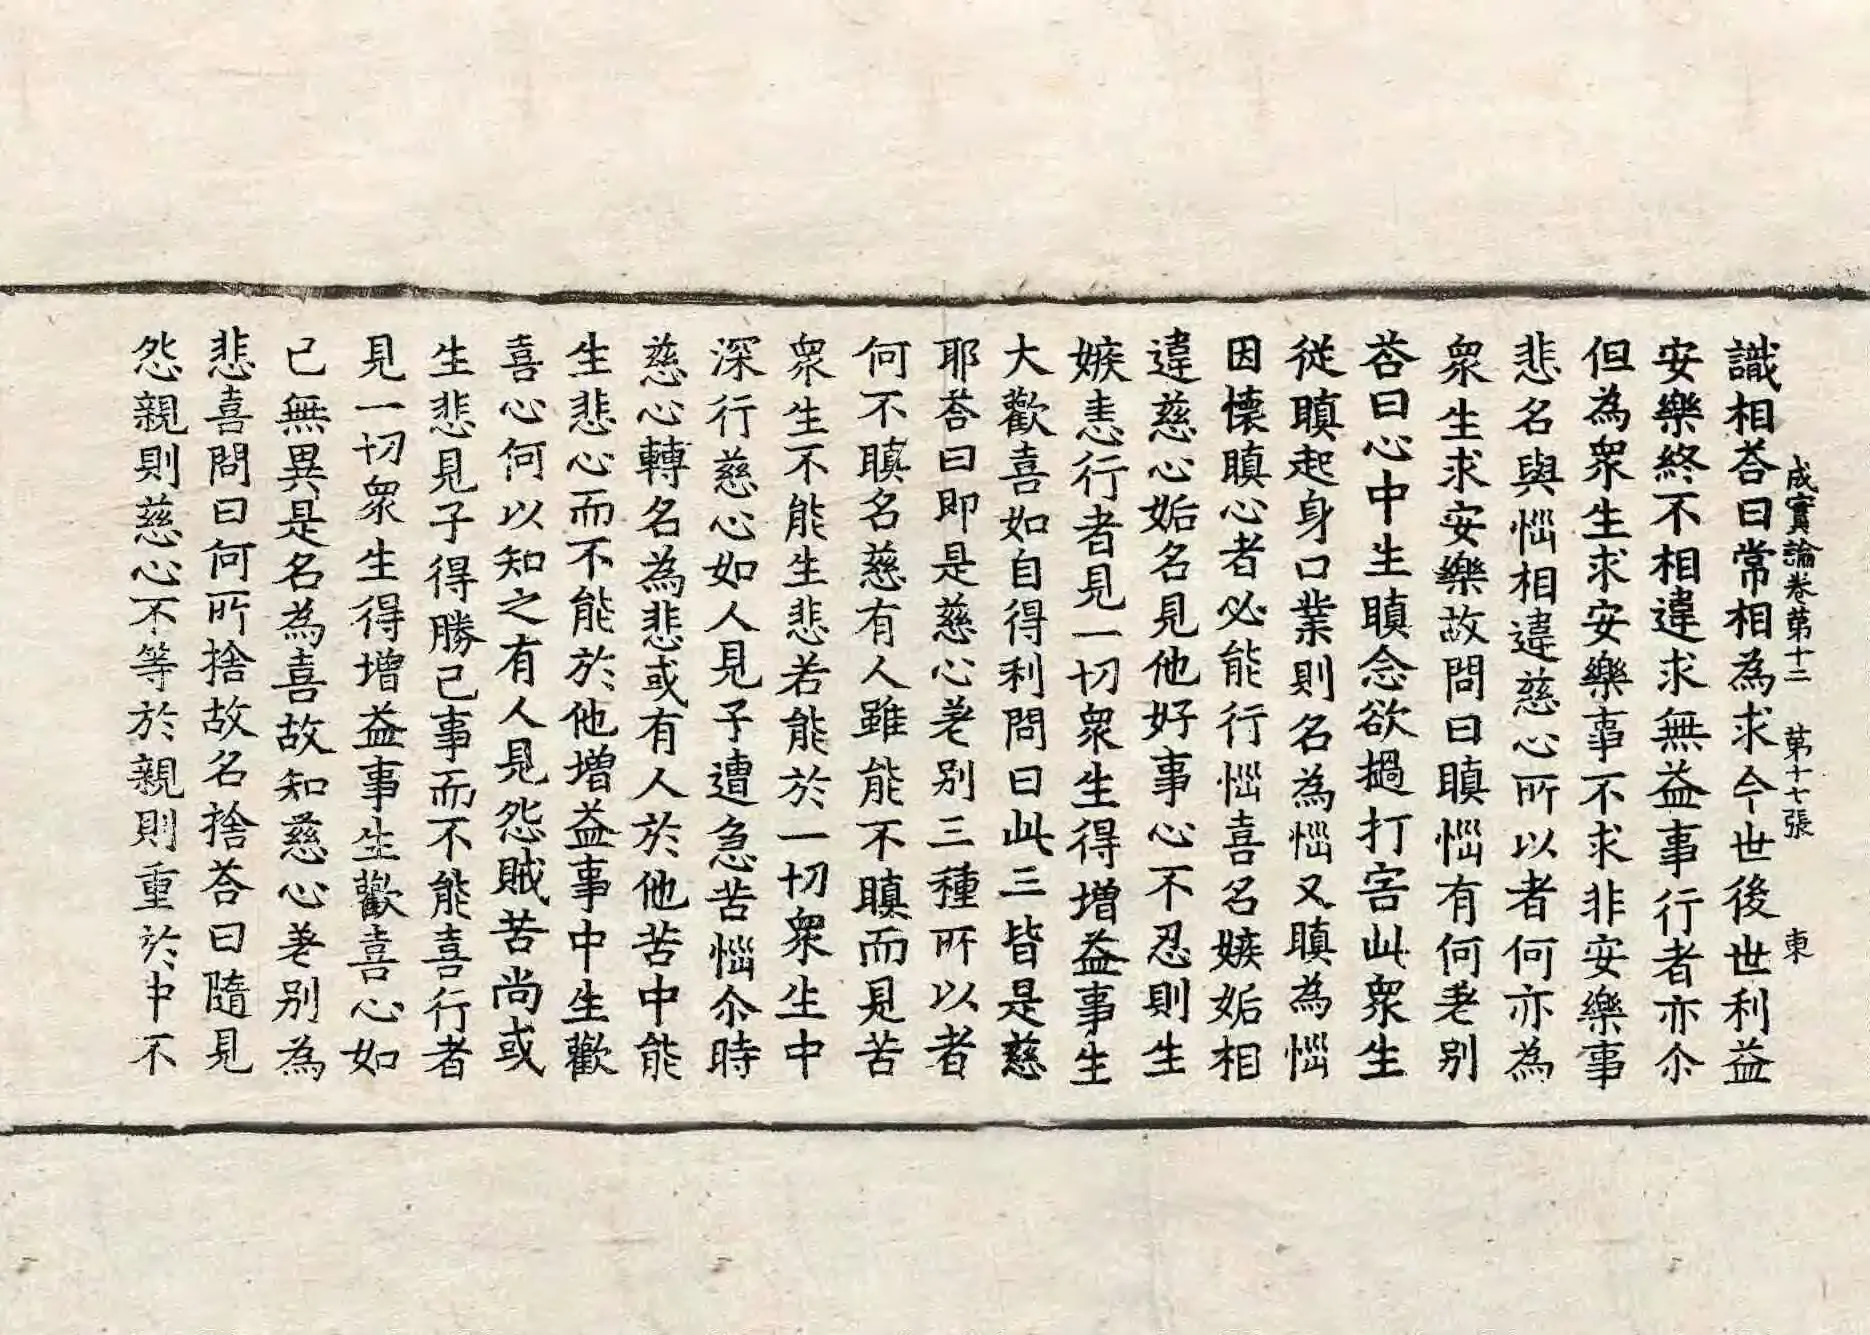 成實論卷第十二　第十七張　東
識相荅曰常相為求今世後世利益
安樂終不相違求無益事行者亦尒
但為衆生求安樂事不求非安樂事
悲名與惱相違慈心所以者何亦為
衆生求安樂故問曰瞋惱有何差别
荅曰心中生瞋念欲撾打害此衆生
從瞋起身口業則名為惱又瞋為惱
因懷瞋心者必能行惱喜名嫉妬相
違慈心妬名見他好事心不忍則生
嫉恚行者見一切衆生得增益事生
大歡喜如自得利問曰此三皆是慈
耶荅曰即是慈心差别三種所以者
何不瞋名慈有人雖能不瞋而見苦
衆生不能生悲若能於一切衆生中
深行慈心如人見子遭急苦惱尒時
慈心轉名為悲或有人於他苦中能
生悲心而不能於他增益事中生歡
喜心何以知之有人見怨賊苦尚或
生悲見子得勝己事而不能喜行者
見一切衆生得增益事生歡喜心如
己無異是名為喜故知慈心差别為
悲喜問曰何所捨故名捨荅曰隨見
怨親則慈心不等於親則重於中不